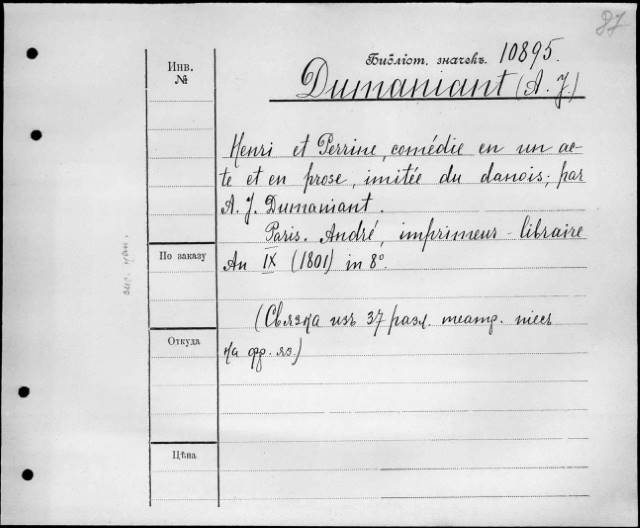 87
Инв.
№
Библіот. значекъ. 10895.
Dumaniant (A. J.)
Henri et Perrine, comédie en un ac-
te et en prose, imitée du danois; par
A. J. Dumaniant.
Paris. André, imprimeur-libraire
По заказу
An IX (1801) in 8°.
(Связка изъ 37 разл. театр. пiес
Откуда
на фр. яз.)
Цѣна